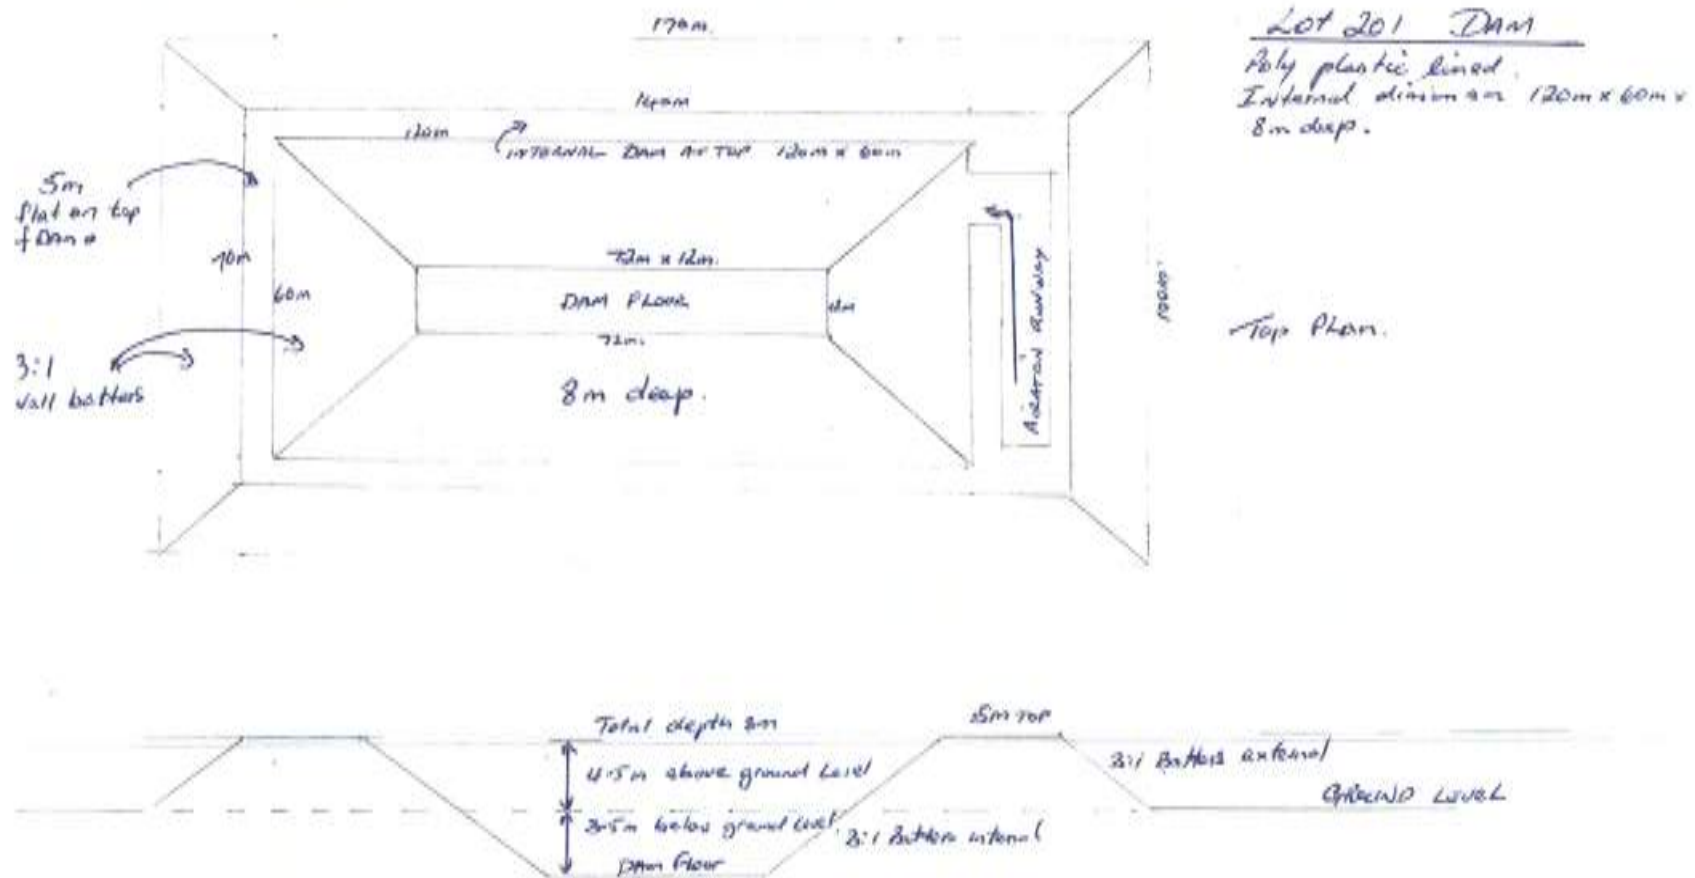 170m.
LOT 201 DAM
Poly plastic lined.
Internal 120m x 60m x
8m deep.
140m
120m
INTERNAL DAM AT TOP 120m x 60m
5m
flat on top
70m
60m
72m x 12m.
DAM FLOOR
12m
72m.
AERATION RUNWAY
100m
Top Plan.
3:1
wall batters
8m deep.
Total depth 8m
5m TOP
4.5m above ground Level
3:1 Batters external
GROUND LEVEL
3.5m below ground level
3:1 Batters internal
DAM Floor